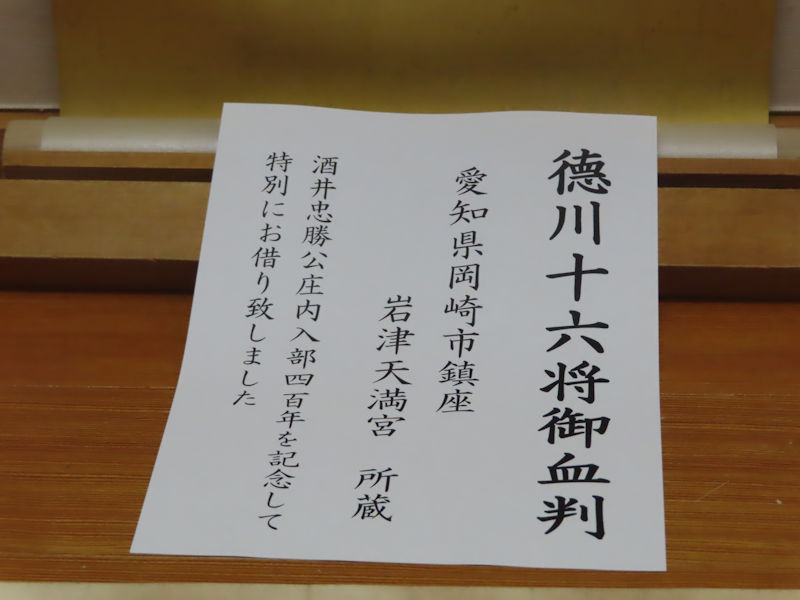 徳川十六将御血判
愛知県岡崎市鎮座
岩津天満宮　所蔵
酒井忠勝公庄内入部四百年を記念して
特別にお借り致しました